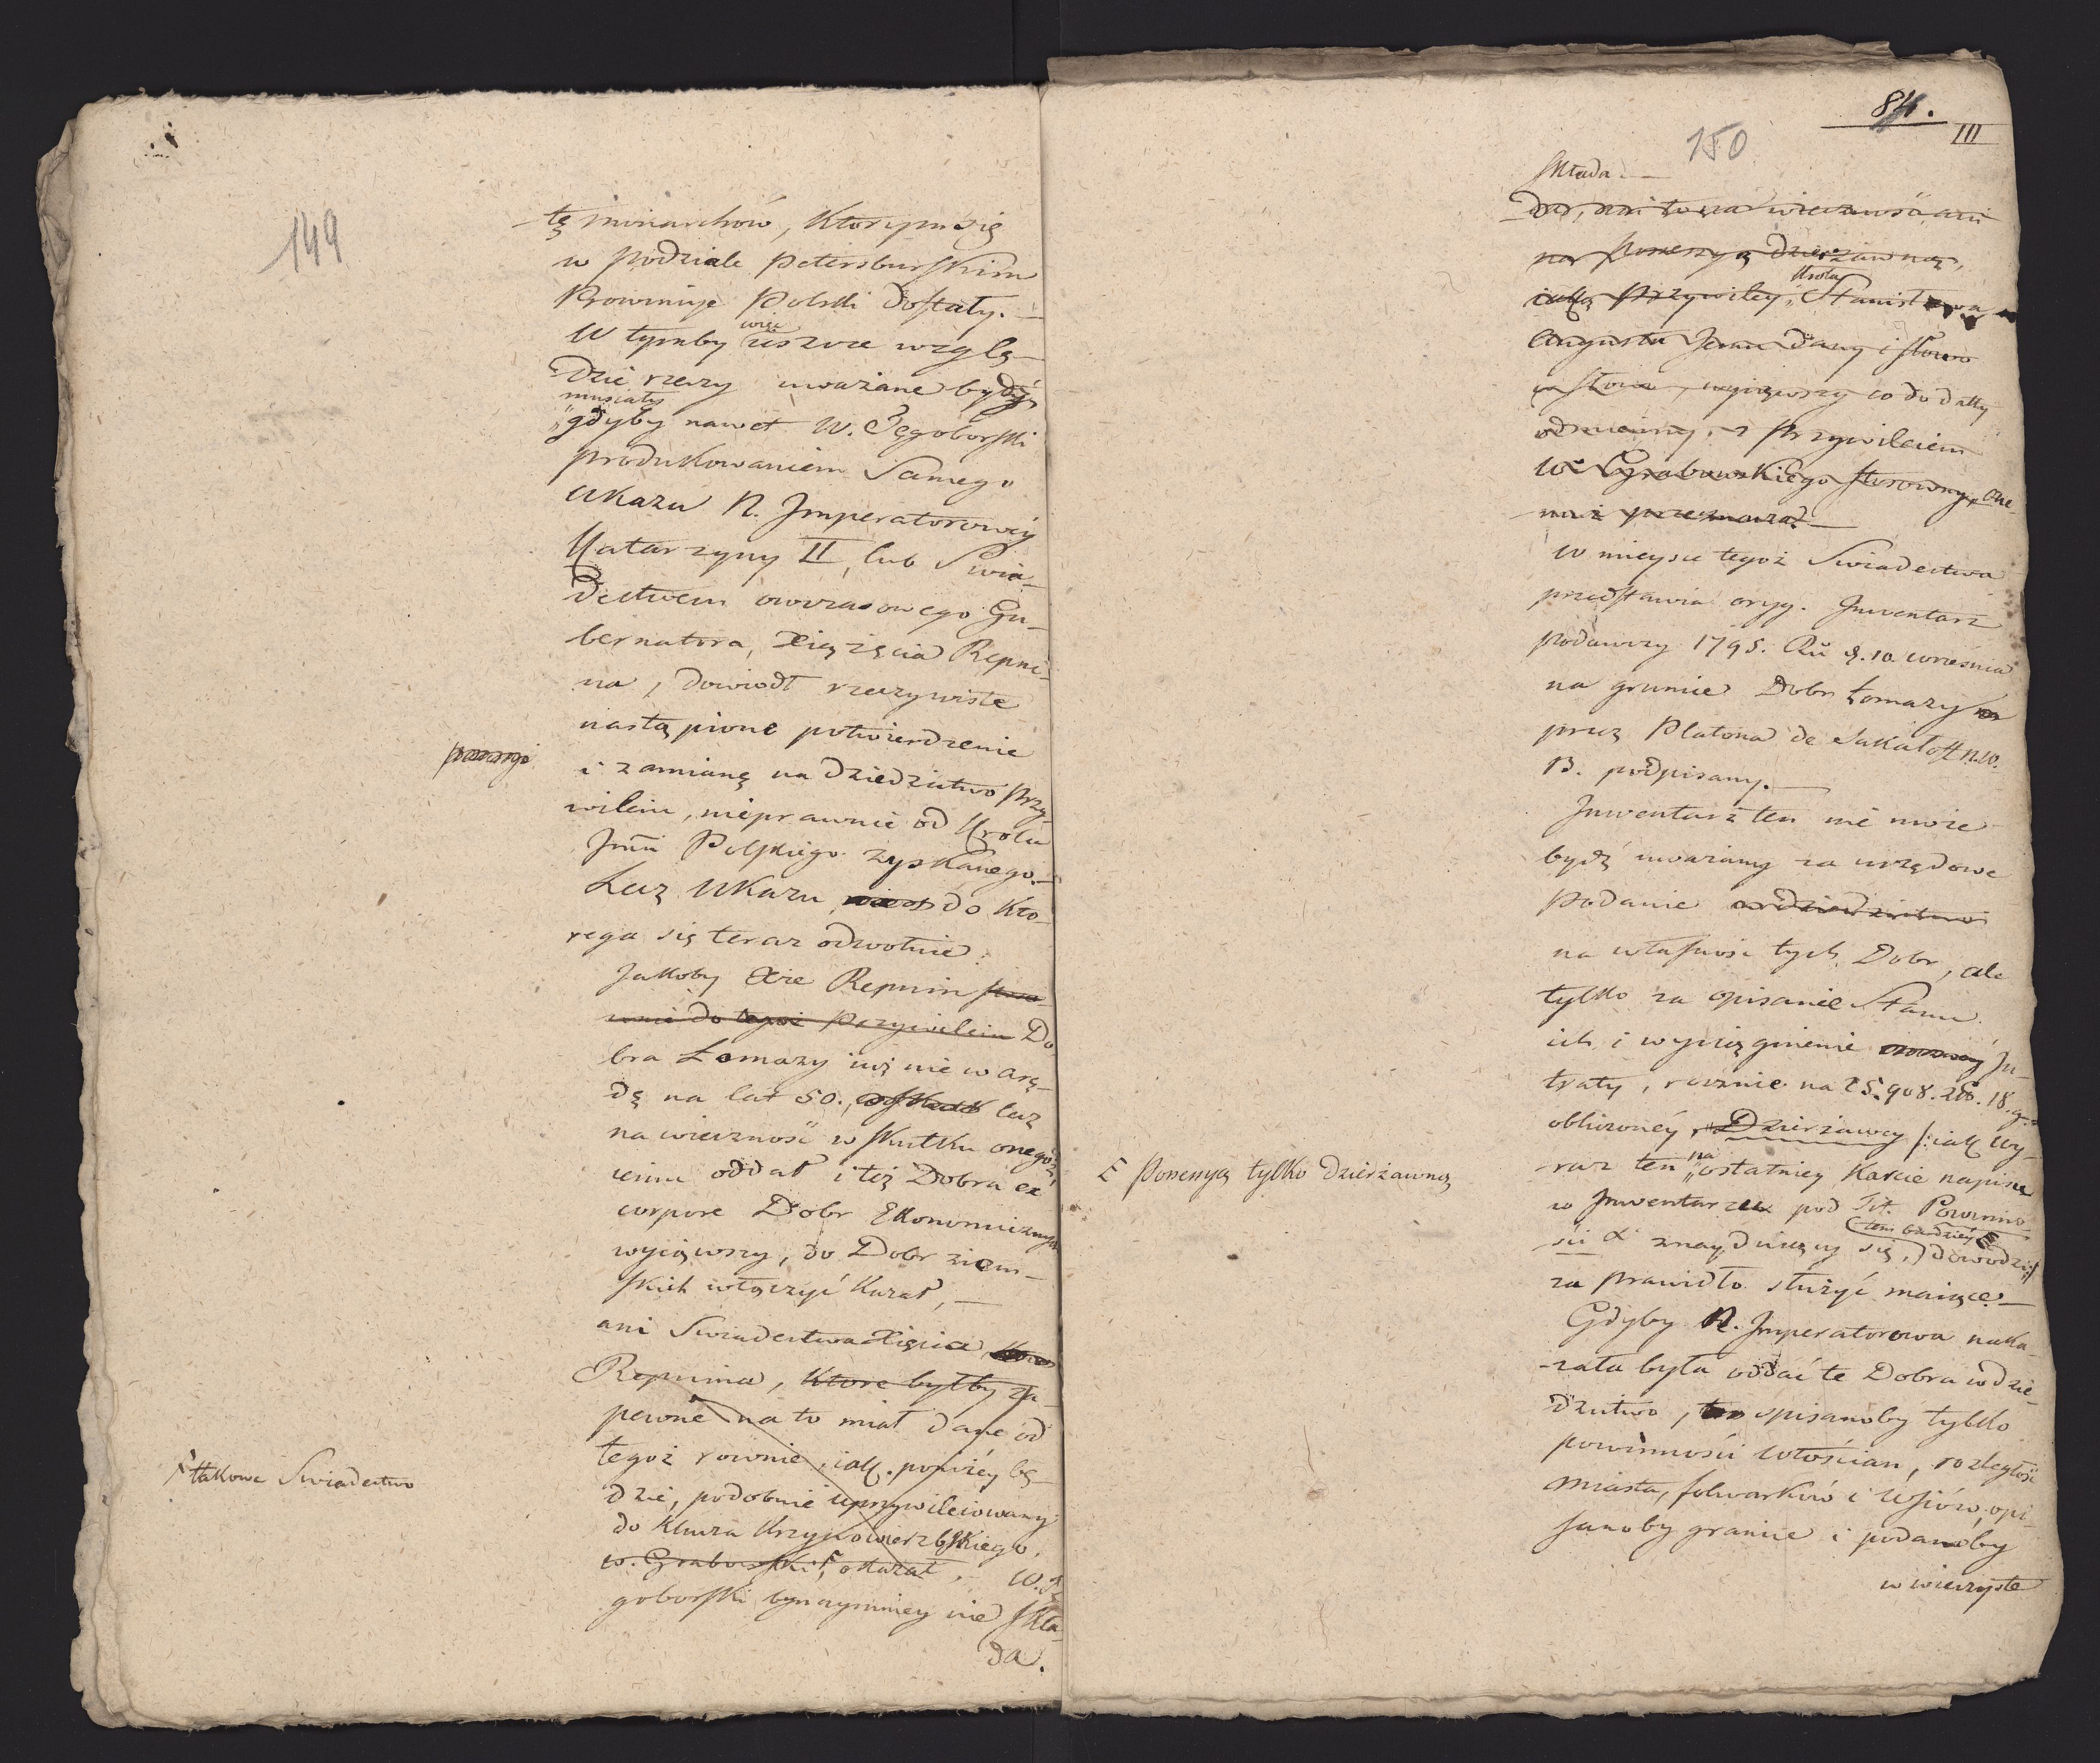 149
tę monarchów, Którym się
w podziale Petersburskim
Prowincye Polski dostały. —
więc
W tymby ieszcze wzglę-
dzie rzeczy uważane bydź
musiały
„gdyby nawet W. Zęgoborski
produkowaniem Samego
Ukazu N. Imperatorowéy
Katarzyny II, lub Swia-
dectwem owczasowego Gu-
bernatora, Xiążęcia Repni-
na, dowiodł rzeczywiste
nastąpione potwierdzenie
i zamianę na dziedzictwo Przy-
wileiu, nieprawnie od Krola
Jmci Polskiego zyskanego. —
Lecz Ukazu do Kto-
rego się teraz odwołuie
Jakoby Xże Repnin
wnie do tegoż Przywileiu Do
bra Łomazy iuż nie w arę-
dę na lat 50., lecz
na wieczność w skutku onegoż,
iemu oddał i też Dobra ex
corpore Dobr Ekonomicznych
wyiąwszy, do Dobr ziem-
skich włączyć Kazał, —
ani Swiadectwa Xięcia
Repnina, Ktore byłby za-
pewne na to miał dane od
tegoż rownie, iak poniżéy bę-
dzie, podobnie uprzywileiowany
do Klucza Krzywowierzbskiego
W. Grabowski, okazał. — W. Zę
goborski bynaymniey nie skła-
da.
takowe Swiadectwo
84.
III
150
Składa. —
Dar, ani to na wieczność ani
na possessyą dzierżawną,
Krola
iako Przywiley „Stanisława
Augusta Jemu dany i słowo
w słowo, wyiąwszy co do datty
odmienny, z Przywileiem
W. Grabowskiego stosowny, one-
muż przeznaczał —
W mieysce tegoż Swiadectwa
przedstawia oryg. Inwentarz
podawczy 1795. Ru d. 10 września
na gruncie Dobr Łomazy
przez Platona de Sakałoff
B. podpisany. —
Inwentarz ten nie może
bydź uważany za urzędowe
podanie w dziedzictwo
na własność tych Dobr, ale
tylko za opisanie Stanu
ich i wyciągnienie In-
traty, rocznie na 25.908. Zł. 18. gr.
obliczonéy, Dzierżawcy /: iak wy-
na
raz ten „ostatniey Karcie napisu
w Inwentarzu pod Tit. Powinno-
tem bardziéy
sci & znayduiący się, dowodzi :/
za prawidło służyć maiące. —
E Possessyą tylko dzierżawną
Gdyby N. Imperatorowa naka-
zała była oddać te Dobra w dzie-
dzictwo, opisanoby tylko
powinności włościan, rozległość
Miasta, folwarków i Wsiów, opi-
sanoby granice i podanoby
w wieczyste